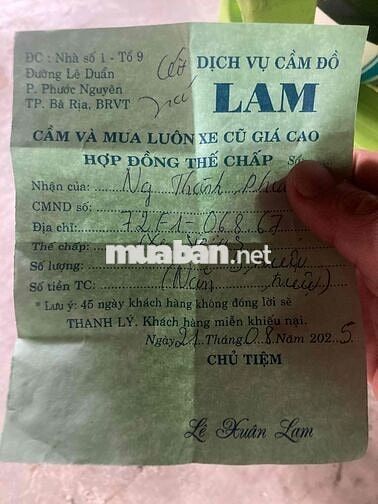 ĐC : Nhà số 1 - Tổ 9
Đường Lê Duẩn
P. Phước Nguyên
TP. Bà Rịa, BRVT
DỊCH VỤ CẦM ĐỒ
LAM
CẦM VÀ MUA LUÔN XE CŨ GIÁ CAO
HỢP ĐỒNG THẾ CHẤP Số:
Nhận của: Ng Thành
CMND số:
Địa chỉ: 72F1-06867
Thế chấp:
Số lượng:
Số tiền TC: (Năm triệu)
muaban.net
* Lưu ý: 45 ngày khách hàng không đóng lời sẽ
THANH LÝ. Khách hàng miễn khiếu nại.
Ngày 21 Tháng 08 Năm 2025
CHỦ TIỆM
Lê Xuân Lam